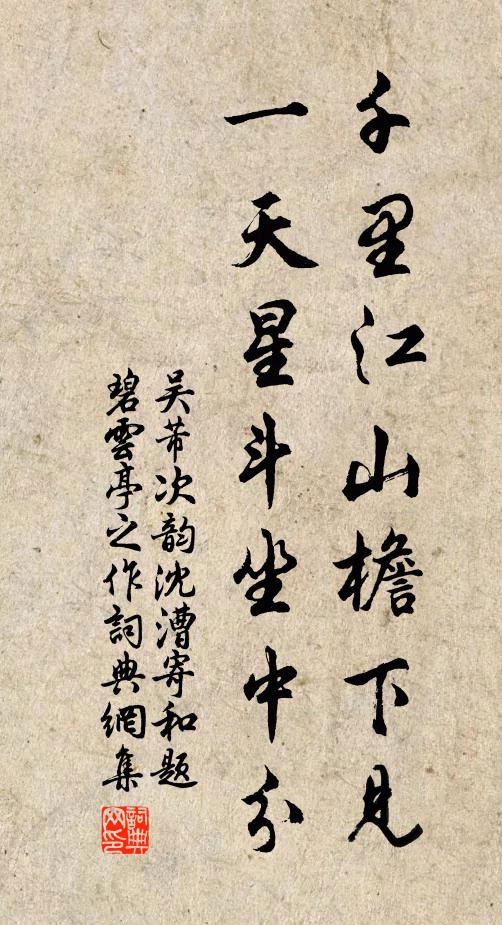 千里江山檐下見
一天星斗坐中分
吴芾次韵沈漕寄和题
碧雲亭之作詞典網集
詞典网印